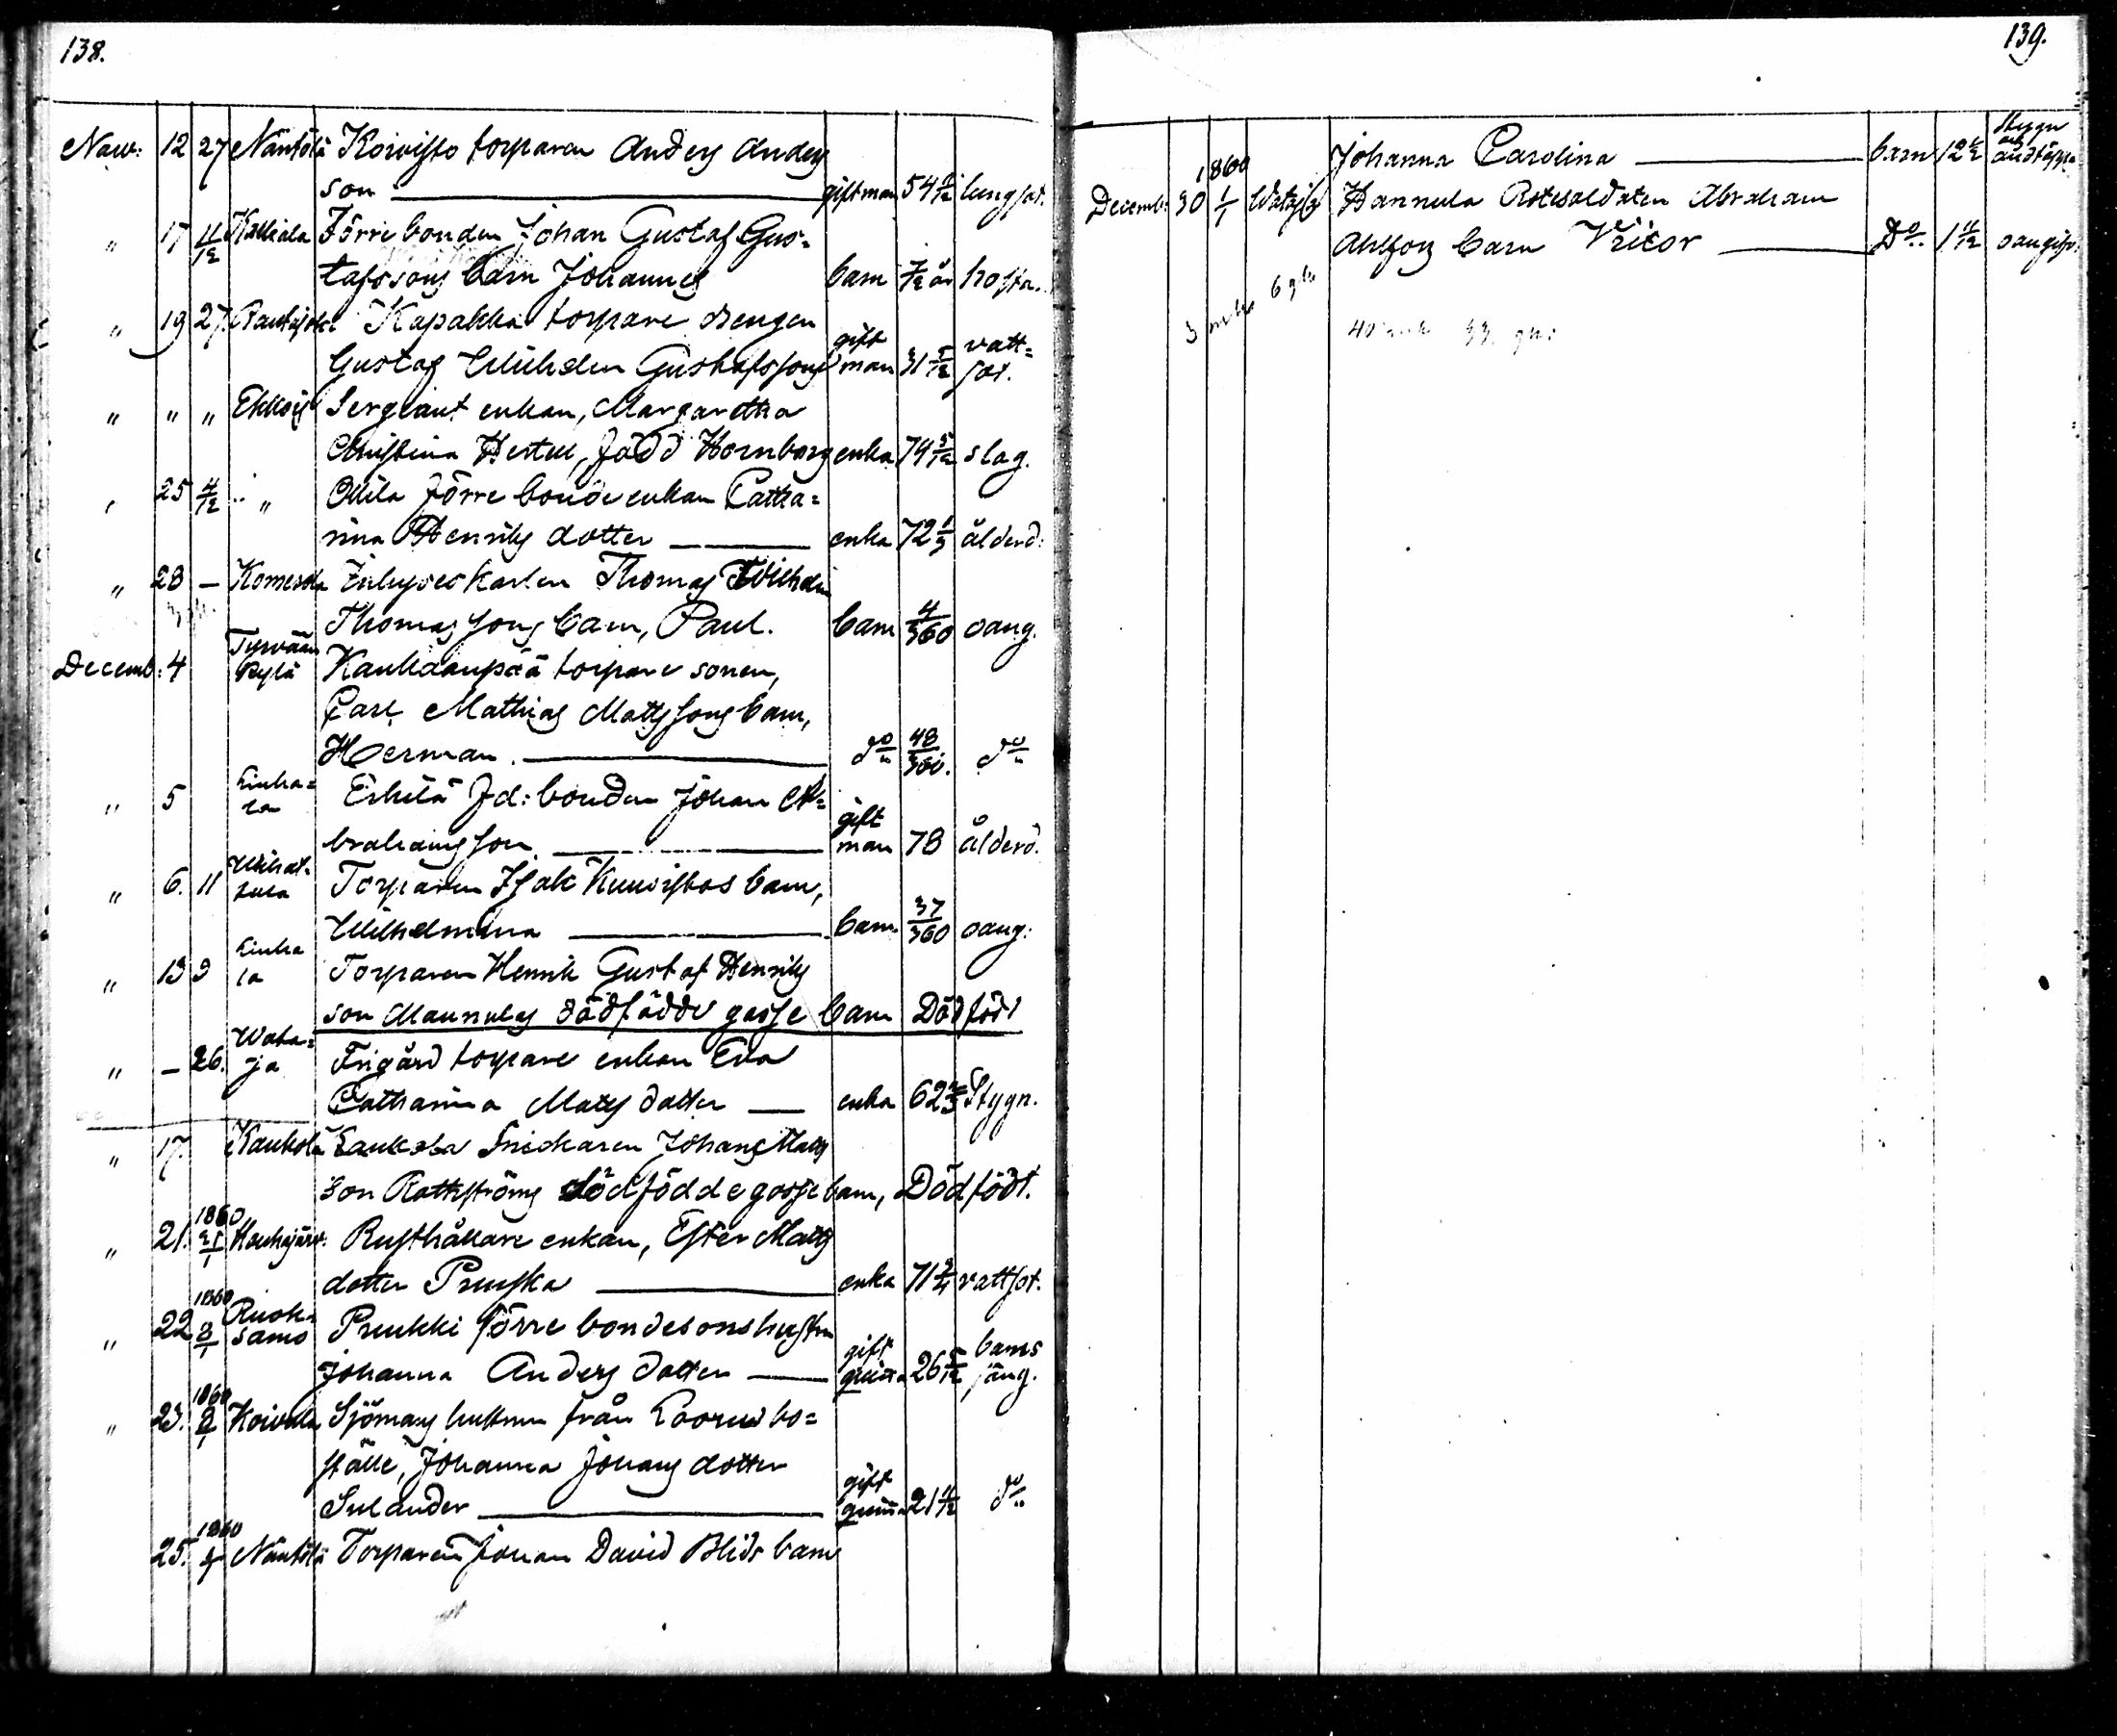 138.
Now: 12 27 Näntölä Koivisto torparen Anders Anders
son giftman 54 lungsot.
" 17 4/12 Kalliala Förre bonden Johan Gustaf Gus=
tafssons barn Johannes barn 7/12 år hosta.
" 19 27. Rautajoki Kapakka torpare drengen
Gustaf Wilhelm Gustafssons gift man 31 5/12 vatt= sot.
" " " Ekkois Sergeant enkan, Margaretha
Christina Hertell, född Hornborg enka 79 5/12 slag.
" 25 4/12 " Ollila förre bonde enkan Catha=
rina Henriks dotter enka 72 1/3 ålderd:
" 28 — Thomas Wilhelm
Thomassons barn, Paul. barn 4/360 oang.
Decemb: 4 Tyrvään kylä Kankaanpää torpare sonen,
Carl Mathias Mattssons barn,
Herman. do 48/360. do
" 5 Liuha= la Erkilä fd: bonden Johan A=
brahamsson gift man 78 ålderd.
" 6. 11 Torparen Isak Kuusistos barn,
Wilhelmina barn 37/360 oang:
" 13 9 Liuha la Torparen Henrik Gustaf Henriks
son Maunulas dödfödde gosse barn Dödfödt
" — 26. Wata= ja Frigård torpare enkan Eva
Catharina Matts dotter enka 62 2/3 Stygn.
" 17. Kaukola Laukola Snickaren Johans Matts
son dödfödde gosse barn, Dödfödt.
" 21. 1860 21/1 Houhajärv: Rusthållare enkan, Ester Matts
dotter Pruska enka 71 3/4 vattsot.
" 22 1860 8/1 Ruok= samo Pruukki förre bondesonshustru
Johanna Anders dotter gift quinna 26 5/12 barns säng.
" 23. 1860 8/1 Koivula Sjömans hustrun från bo=
ställe, Johanna Johans dotter
Sulander gift quinna 21 4/12 do
25. 1860 Näntölä Torparen Johan David Blids barn
139.
Johanna Carolina barn 12 Stygn och andtäppa
Decemb: 30 1860 1/1 Hannula Rotesoldaten Abraham
Ahlfors barn Victor Do 1 oangifv.
3 mk 6
40 mk 33